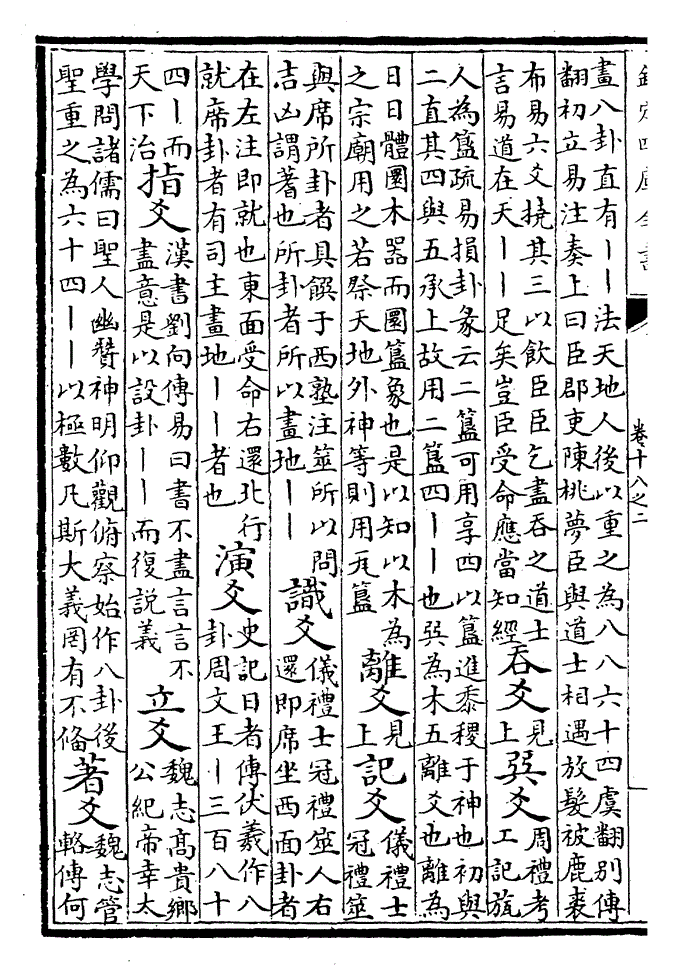 欽定四庫全書
卷十八之二
畫八卦直有丨丨法天地人後以重之為八八六十四虞翻別傳
翻初立易注奏上曰臣郡吏陳桃夢臣與道士相遇放髮被鹿裘
布易六爻撓其三以飲臣臣乞盡吞之道士
言易道在天丨丨足矣豈臣受命應當知經
吞爻
見
上
巽爻
周禮考
工記旊
人為簋疏易損卦彖云二簋可用享四以簋進黍稷于神也初與
二直其四與五承上故用二簋四丨丨也巽為木五離爻也離為
日日體圜木器而圜簋象也是以知以木為
之宗廟用之若祭天地外神等則用瓦簋
離爻
見
上
記爻
儀禮士
冠禮筮
與席所卦者具饌于西塾注筮所以問
吉凶謂蓍也所卦者所以畫地丨丨
識爻
儀禮士冠禮筮人右
還即席坐西面卦者
在左注即就也東面受命右還北行
就席卦者有司主畫地丨丨者也
演爻
史記日者傳伏羲作八
卦周文王丨三百八十
四丨而
天下治
指爻
漢書劉向傳易曰書不盡言言不
盡意是以設卦丨丨而復說義
立爻
魏志髙貴鄉
公紀帝幸太
學問諸儒曰聖人幽贊神明仰觀俯察始作八卦後
聖重之為六十四丨丨以極數凡斯大義罔有不俻
著爻
魏志管
輅傳何